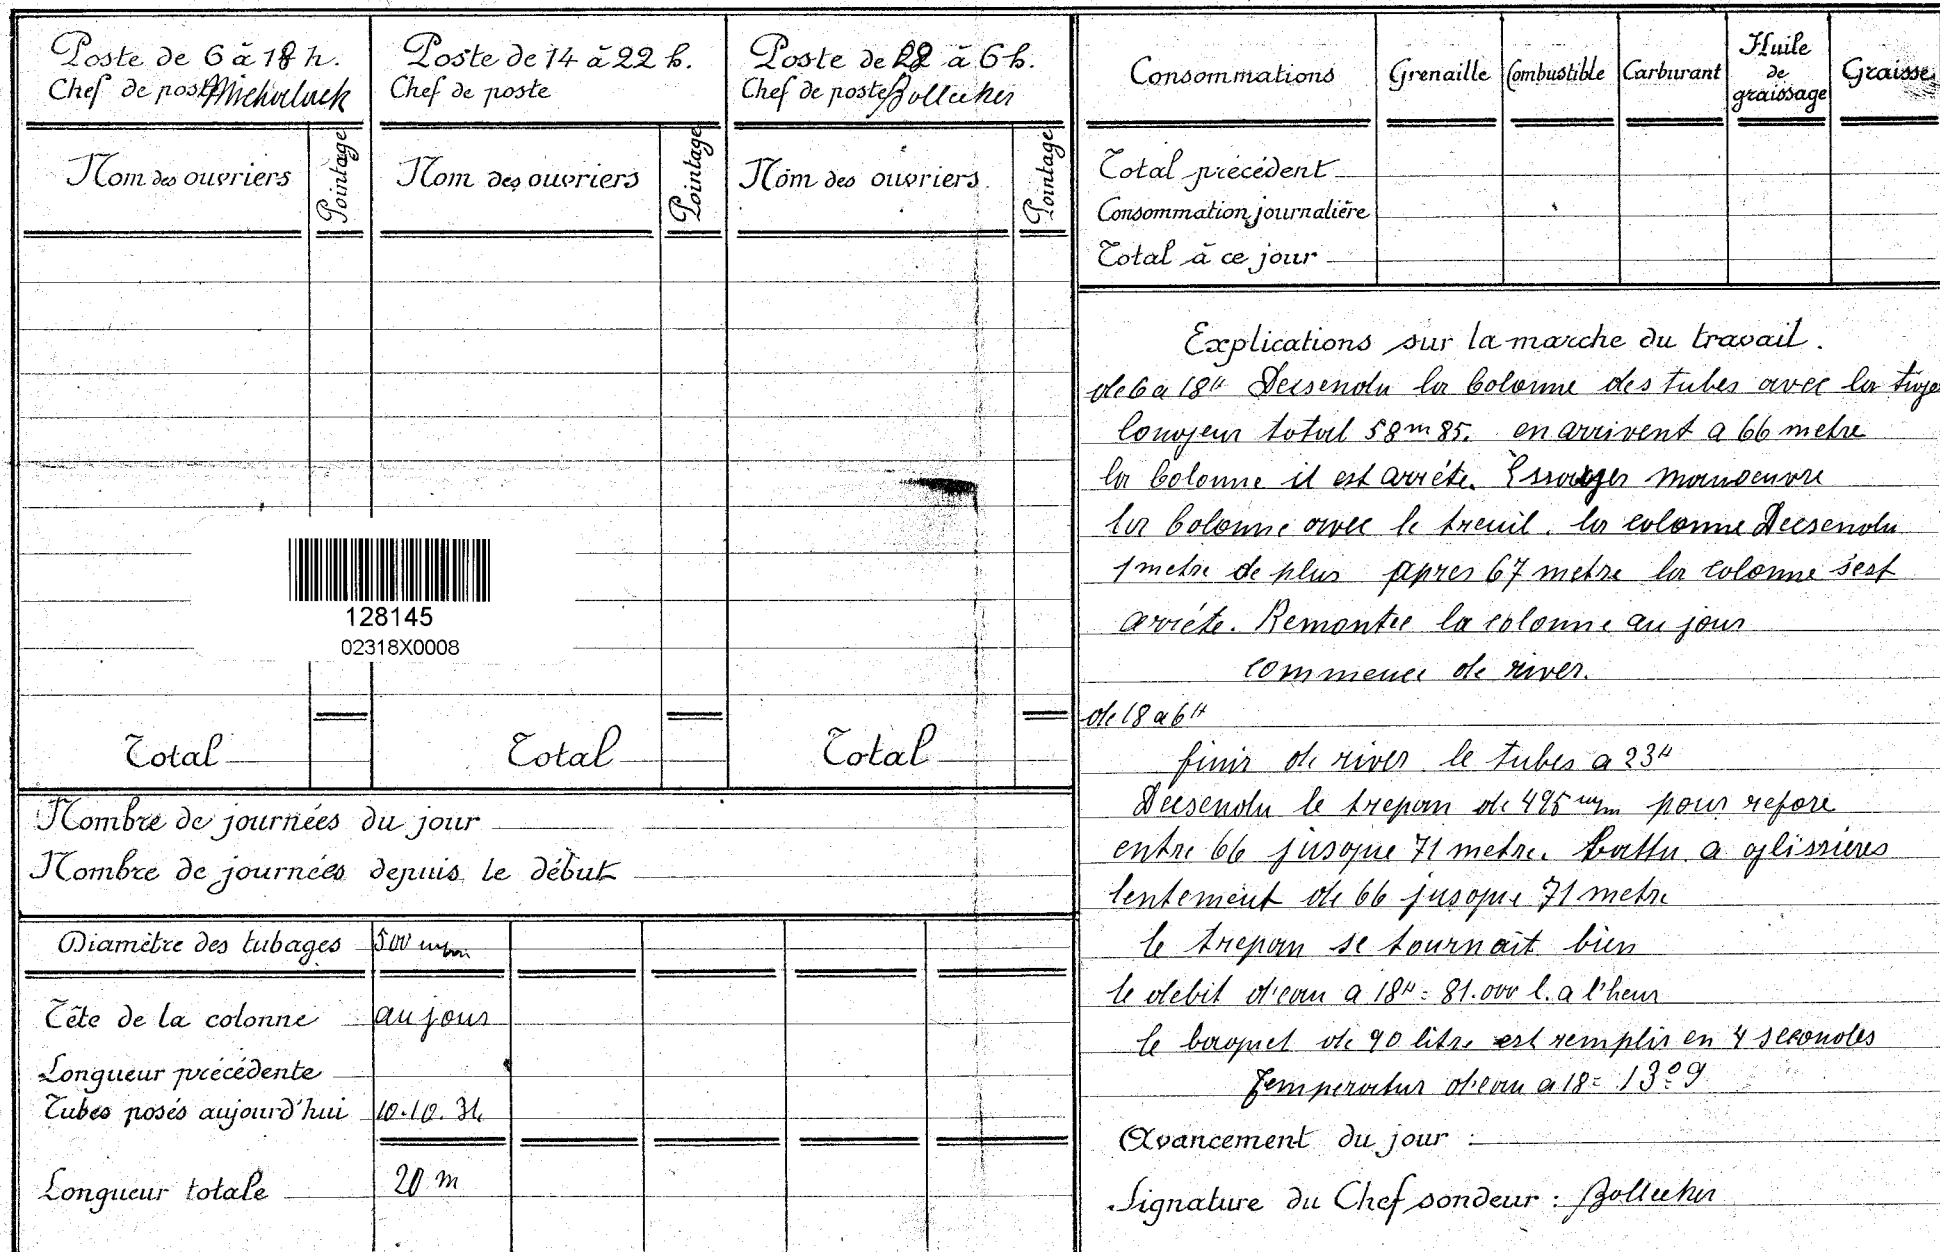 Poste de 6 à 18 h.
Chef de poste
Nom des ouvriers
Pointage
Total
Poste de 14 à 22 h.
Chef de poste
Nom des ouvriers
Pointage
Total
Poste de 22 à 6 h.
Chef de poste Bollecker
Nom des ouvriers
Pointage
Total
128145
02318X0008
Nombre de journées du jour
Nombre de journées depuis le début
Diamètre des tubages 500 m/m
Tête de la colonne au jour
Longueur précédente
Tubes posés aujourd'hui 10.10.
Longueur totale 20 m
Consommations Grenaille Combustible Carburant Huile de graissage Graisse
Total précédent
Consommation journalière
Total à ce jour
Explications sur la marche du travail.
de 6 a 18H Decsendu la Colonne des tubes avec la tige
longeur total 58m85. en arrivent a 66 metre
la Colonne il est arréte. Essayer manoeuvre
la Colonne avec le treuil. la colonne Decsendu
1 metre de plus apres 67 metre la colonne s'est
arréte. Remontee la colonne au jour
commence de river.
de 18 a 6H
finir de river le tubes a 23H
Decsendu le trepan de 495 m/m pour refore
entre 66 jusque 71 metre. battu a glissieres
lentement de 66 jusque 71 metre
le trepan se tournait bien
le debit d'eau a 18H = 81.000 l. a l'heur
le baquet de 90 litre est remplis en 4 secondes
Temperatur d'eau a 18 = 13°9
Avancement du jour :
Signature du Chef sondeur : Bollecker